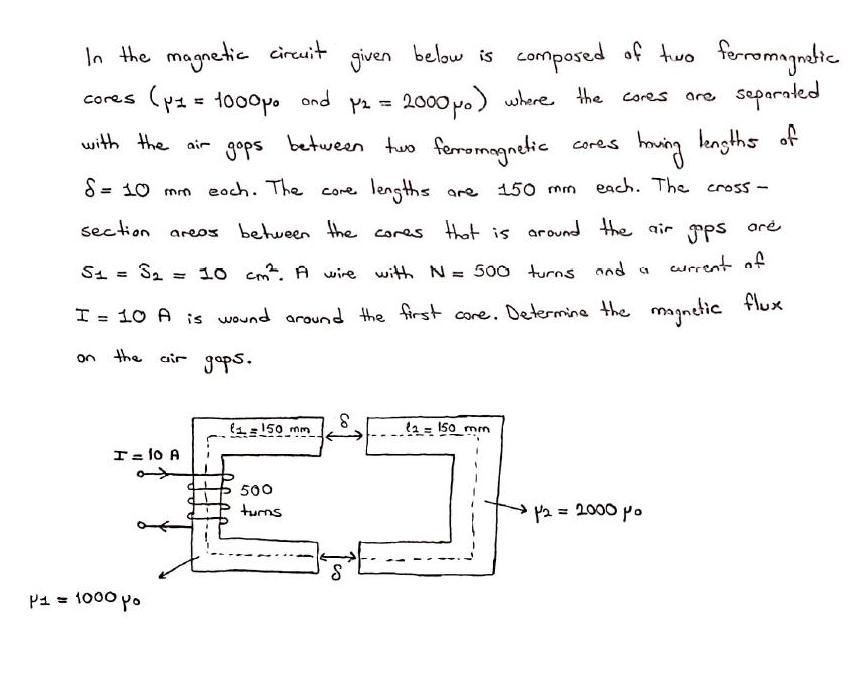 In the magnetic circuit given below is composed of two ferromagnetic
cores (μ1 = 1000μo and μ2 = 2000μo) where the cores are separated
with the air gaps between two ferromagnetic cores having lengths of
δ = 10 mm each. The core lengths are 150 mm each. The cross-
section areas between the cores that is around the air gaps are
S1 = S2 = 10 cm². A wire with N = 500 turns and a current of
I = 10 A is wound around the first core. Determine the magnetic flux
on the air gaps.
ℓ1 = 150 mm
δ
ℓ2 = 150 mm
I = 10 A
500
turns
μ2 = 2000 μo
δ
μ1 = 1000 μo